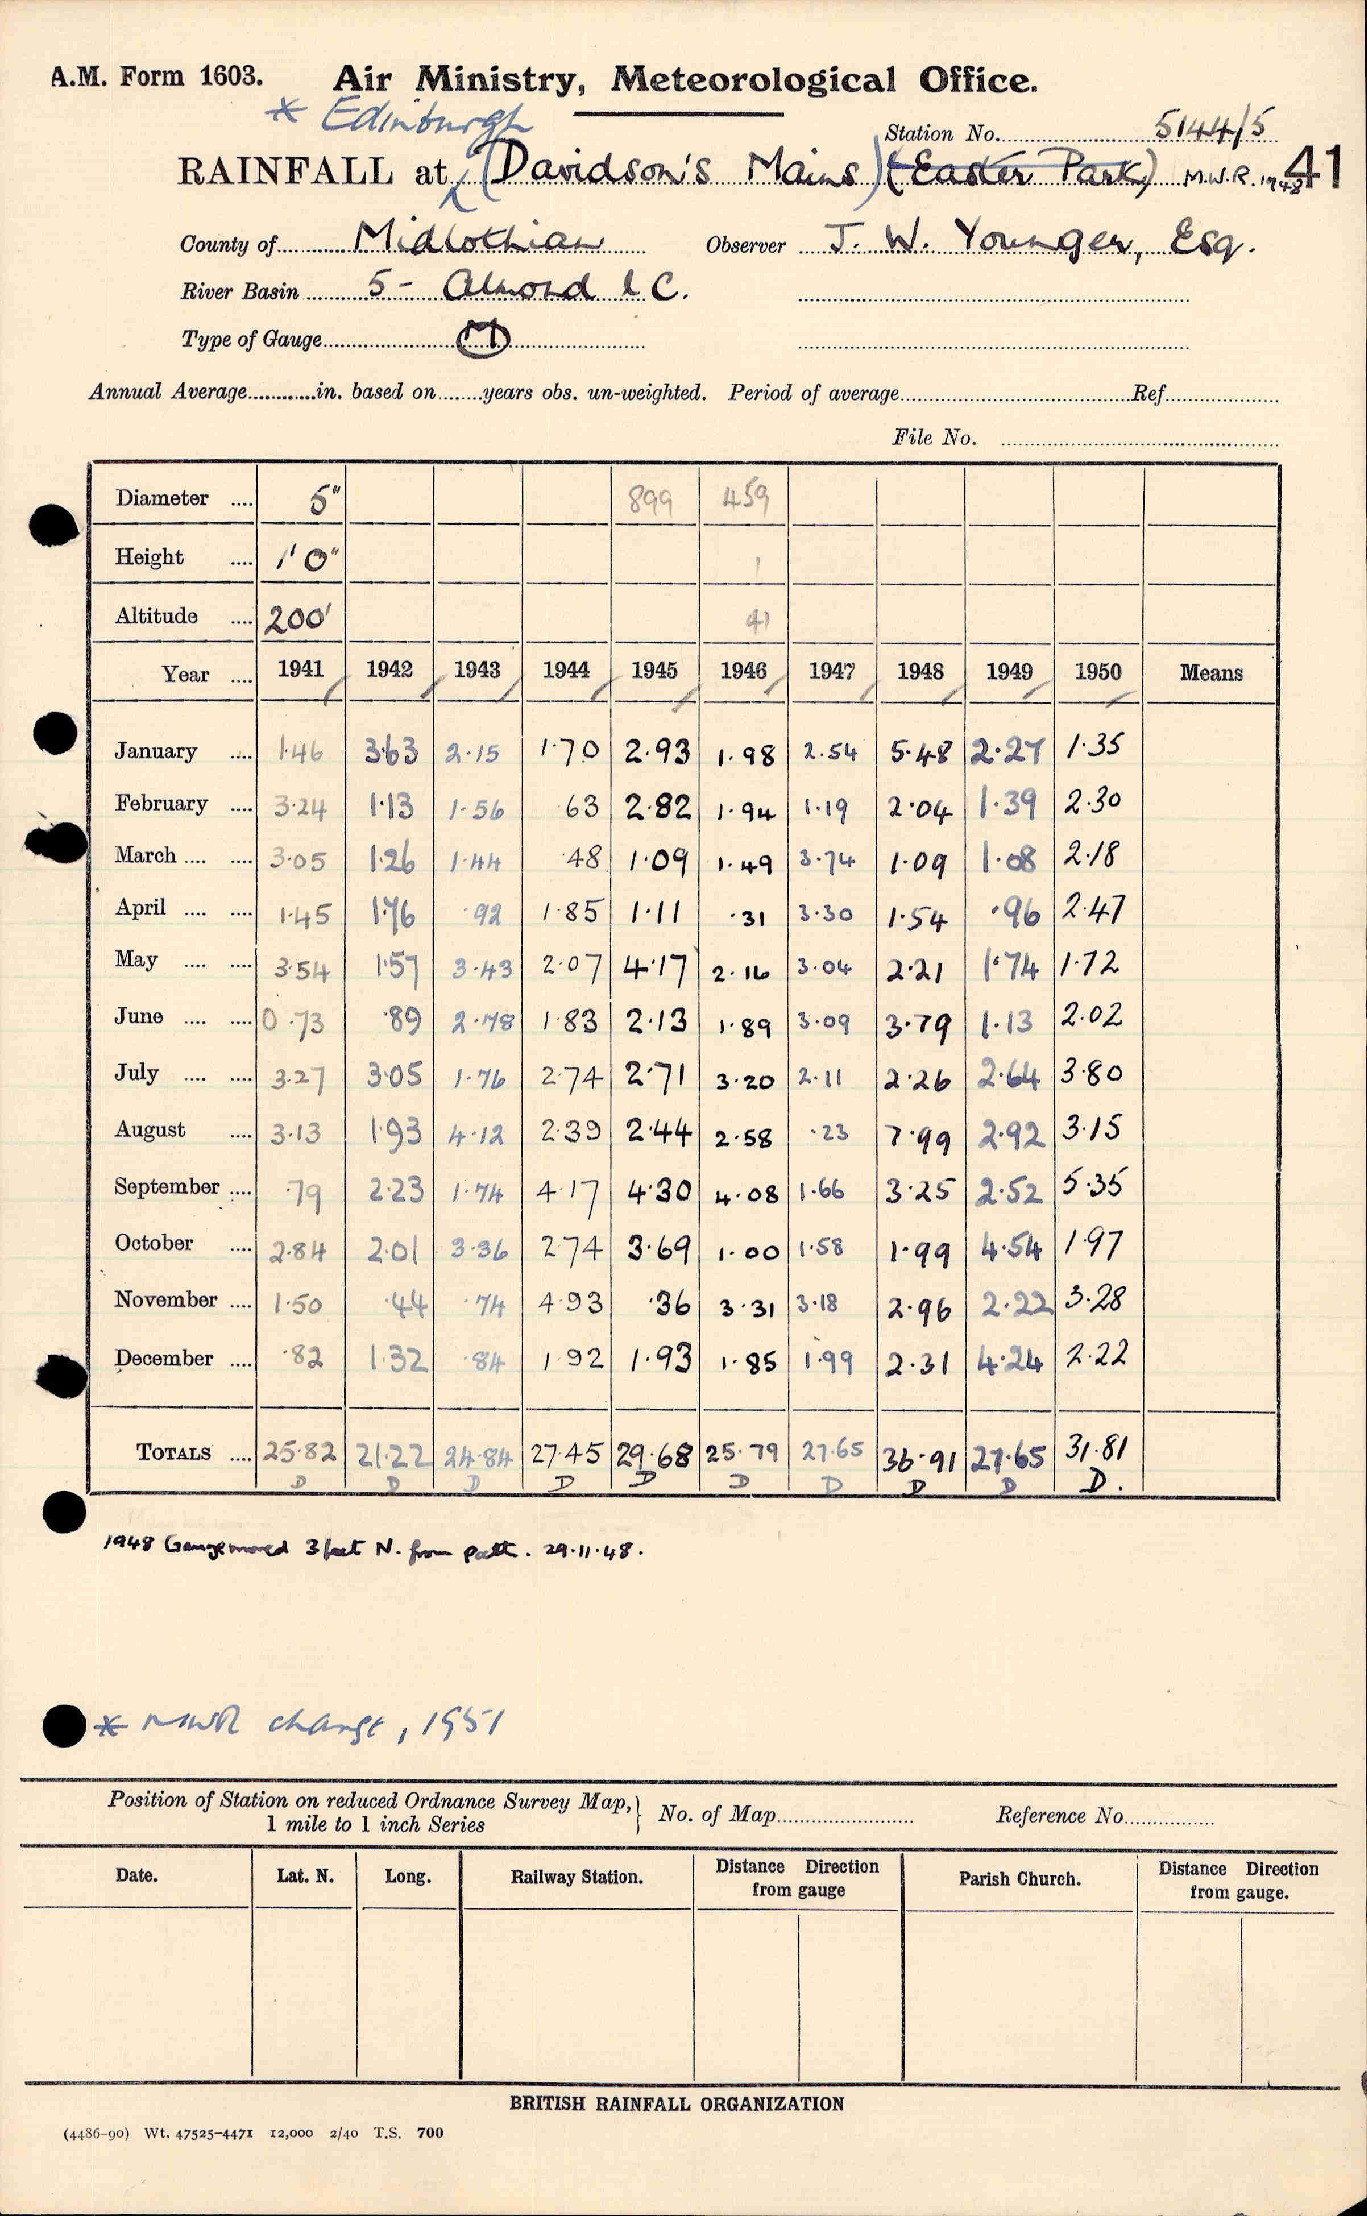 A.M. Form 1603. Air Ministry, Meteorological Office.
* Edinburgh
Station No. 5144/5
RAINFALL at (Davidson's Mains) (Easter Park) M.W.R. 1948 41
County of Midlothian Observer J. W. Younger, Esq.
River Basin 5 - Almond & C.
Type of Gauge M
Annual Average in. based on years obs. un-weighted. Period of average Ref.
File No.
Diameter .... 5" 899 459
Height .... 1'0" 1
Altitude .... 200' 41
Year .... 1941 1942 1943 1944 1945 1946 1947 1948 1949 1950 Means
January .... 1.46 3.63 2.15 1.70 2.93 1.98 2.54 5.48 2.27 1.35
February .... 3.24 1.13 1.56 .63 2.82 1.94 1.19 2.04 1.39 2.30
March .... .... 3.05 1.26 1.44 .48 1.09 1.49 3.74 1.09 1.08 2.18
April .... .... 1.45 1.76 .92 1.85 1.11 .31 3.30 1.54 .96 2.47
May .... .... 3.54 1.57 3.43 2.07 4.17 2.16 3.04 2.21 1.74 1.72
June .... .... 0.73 .89 2.78 1.83 2.13 1.89 3.09 3.79 1.13 2.02
July .... .... 3.27 3.05 1.76 2.74 2.71 3.20 2.11 2.26 2.64 3.80
August .... 3.13 1.93 4.12 2.39 2.44 2.58 .23 7.99 2.92 3.15
September .... .79 2.23 1.74 4.17 4.30 4.08 1.66 3.25 2.52 5.35
October .... 2.84 2.01 3.36 2.74 3.69 1.00 1.58 1.99 4.54 1.97
November .... 1.50 .44 .74 4.93 .36 3.31 3.18 2.96 2.22 3.28
December .... .82 1.32 .84 1.92 1.93 1.85 1.99 2.31 4.24 2.22
TOTALS .... 25.82 21.22 24.84 27.45 29.68 25.79 27.65 36.91 27.65 31.81
D D D D D D D D D D.
1948 Gauge moved 3 feet N. from path. 29.11.48.
* MWR change, 1951
Position of Station on reduced Ordnance Survey Map, } No. of Map Reference No.
1 mile to 1 inch Series
Date. Lat. N. Long. Railway Station. Distance Direction from gauge Parish Church. Distance Direction from gauge.
BRITISH RAINFALL ORGANIZATION
(4486-90) Wt. 47525-4471 12,000 2/40 T.S. 700